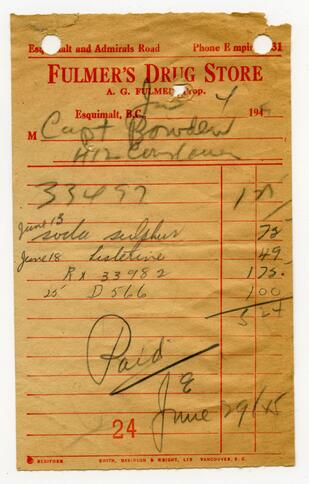 Esquimalt and Admirals Road Phone Empire 31
FULMER'S DRUG STORE
A. G. FULMER, Prop.
Esquimalt, B.C. June 4 194
M Capt Bowden
33497 1 25
June 13 soda sulphur 75
June 18 Listerine 49
Rx 33982 1 75
25 D 566 1 00
5 24
Paid
E
June 29/45
24
REDIFORM SMITH, DAVIDSON & WRIGHT, LTD VANCOUVER, B. C.